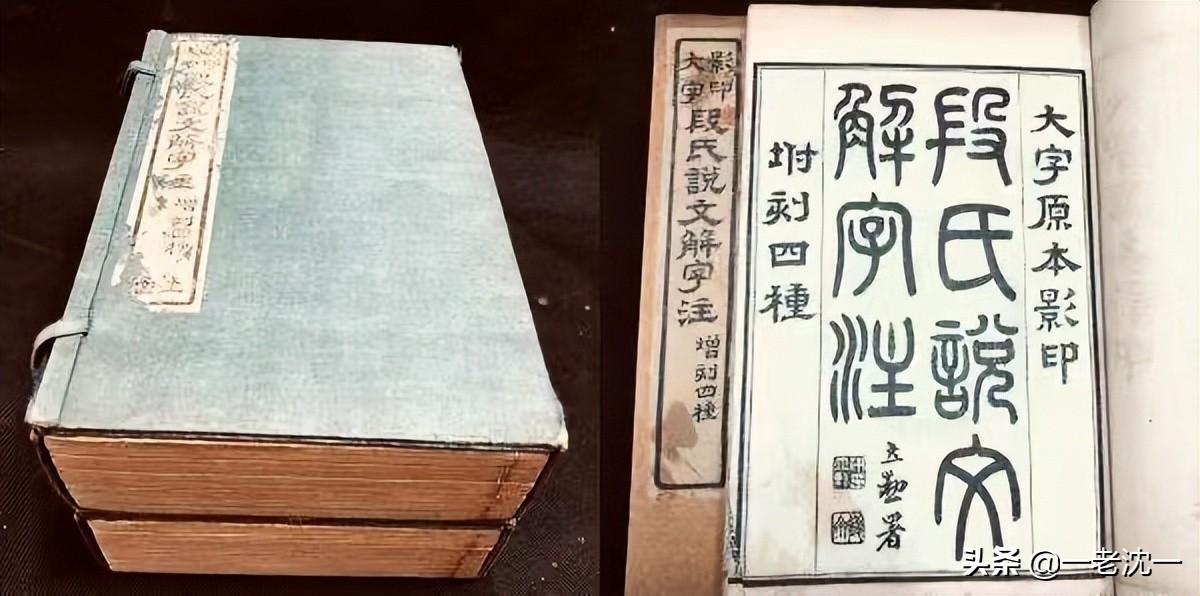 段說文解字注
增刻四種
影印
大字
段氏說文解字注
增刻四種
大字原本影印
段氏說文
解字注
坿刻四種
署
头条 @一老沈一